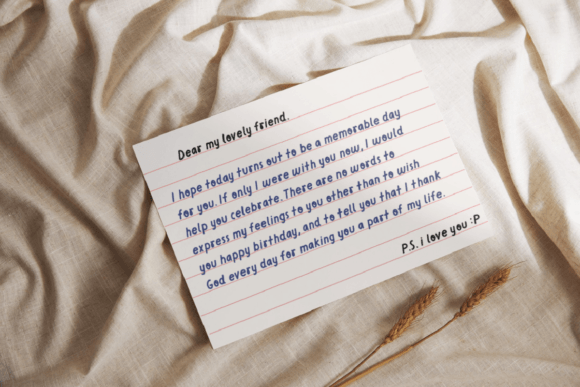 Dear my lovely friend.
I hope today turns out to be a memorable day
for you. If only I were with you now, I would
help you celebrate. There are no words to
express my feelings to you other than to wish
you happy birthday, and to tell you that I thank
God every day for making you a part of my life.
P.S. i love you :P